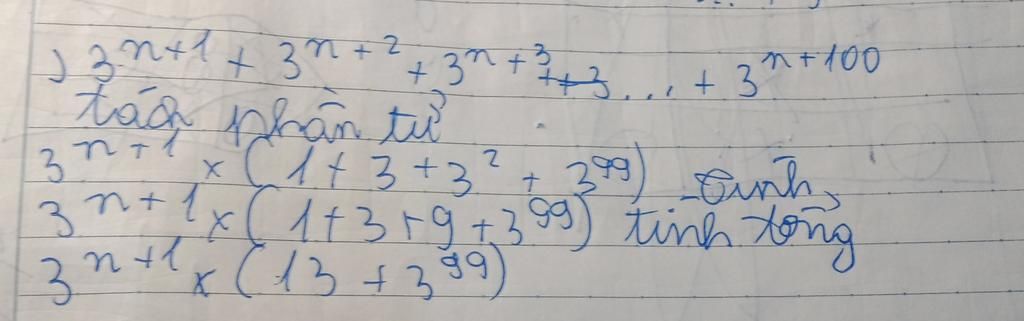 ) 3^n+1 + 3^n+2 + 3^n+3 + ... + 3^n+100
tách phần tử
3^n+1 x (1 + 3 + 3^2 + 3^99)
3^n+1 x (1 + 3 + 9 + 3^99) tính tổng
3^n+1 x (13 + 3^99)